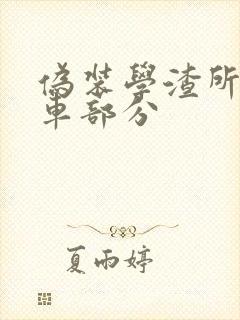 偽裝學渣所
車部分
夏雨婷